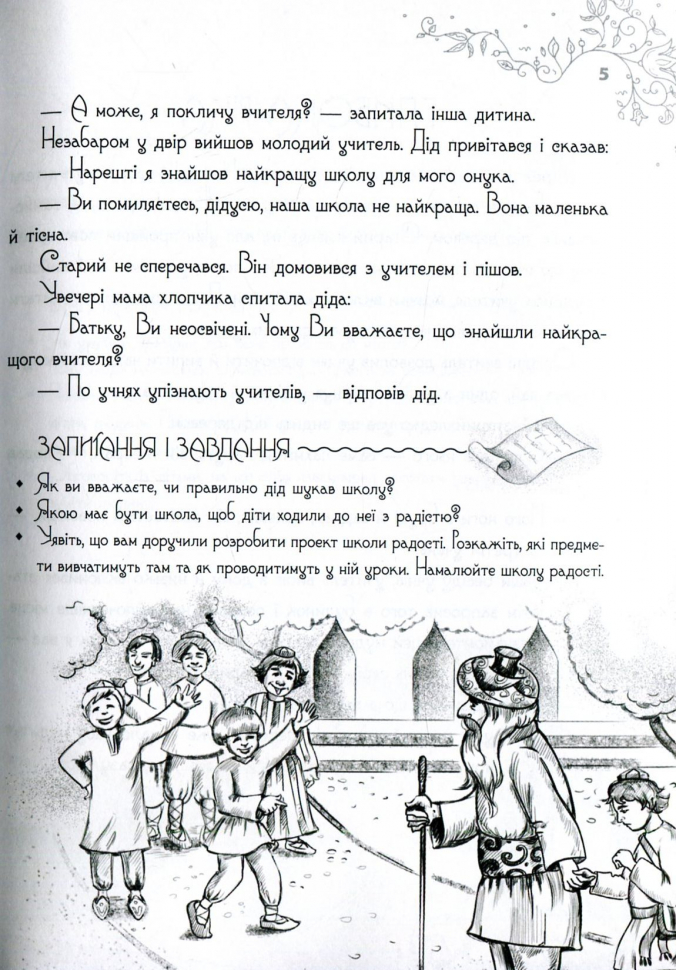 5
— А може, я покличу вчителя? — запитала інша дитина.
Незабаром у двір вийшов молодий учитель. Дід привітався і сказав:
— Нарешті я знайшов найкращу школу для мого онука.
— Ви помиляєтесь, дідусю, наша школа не найкраща. Вона маленька
й тісна.
Старий не сперечався. Він домовився з учителем і пішов.
Увечері мама хлопчика спитала діда:
— Батьку, Ви неосвічені. Чому Ви вважаєте, що знайшли найкра-
щого вчителя?
— По учнях упізнають учителів, — відповів дід.
ЗАПИТАННЯ І ЗАВДАННЯ
• Як ви вважаєте, чи правильно дід шукав школу?
• Якою має бути школа, щоб діти ходили до неї з радістю?
• Уявіть, що вам доручили розробити проект школи радості. Розкажіть, які предме-
ти вивчатимуть там та як проводитимуть у ній уроки. Намалюйте школу радості.